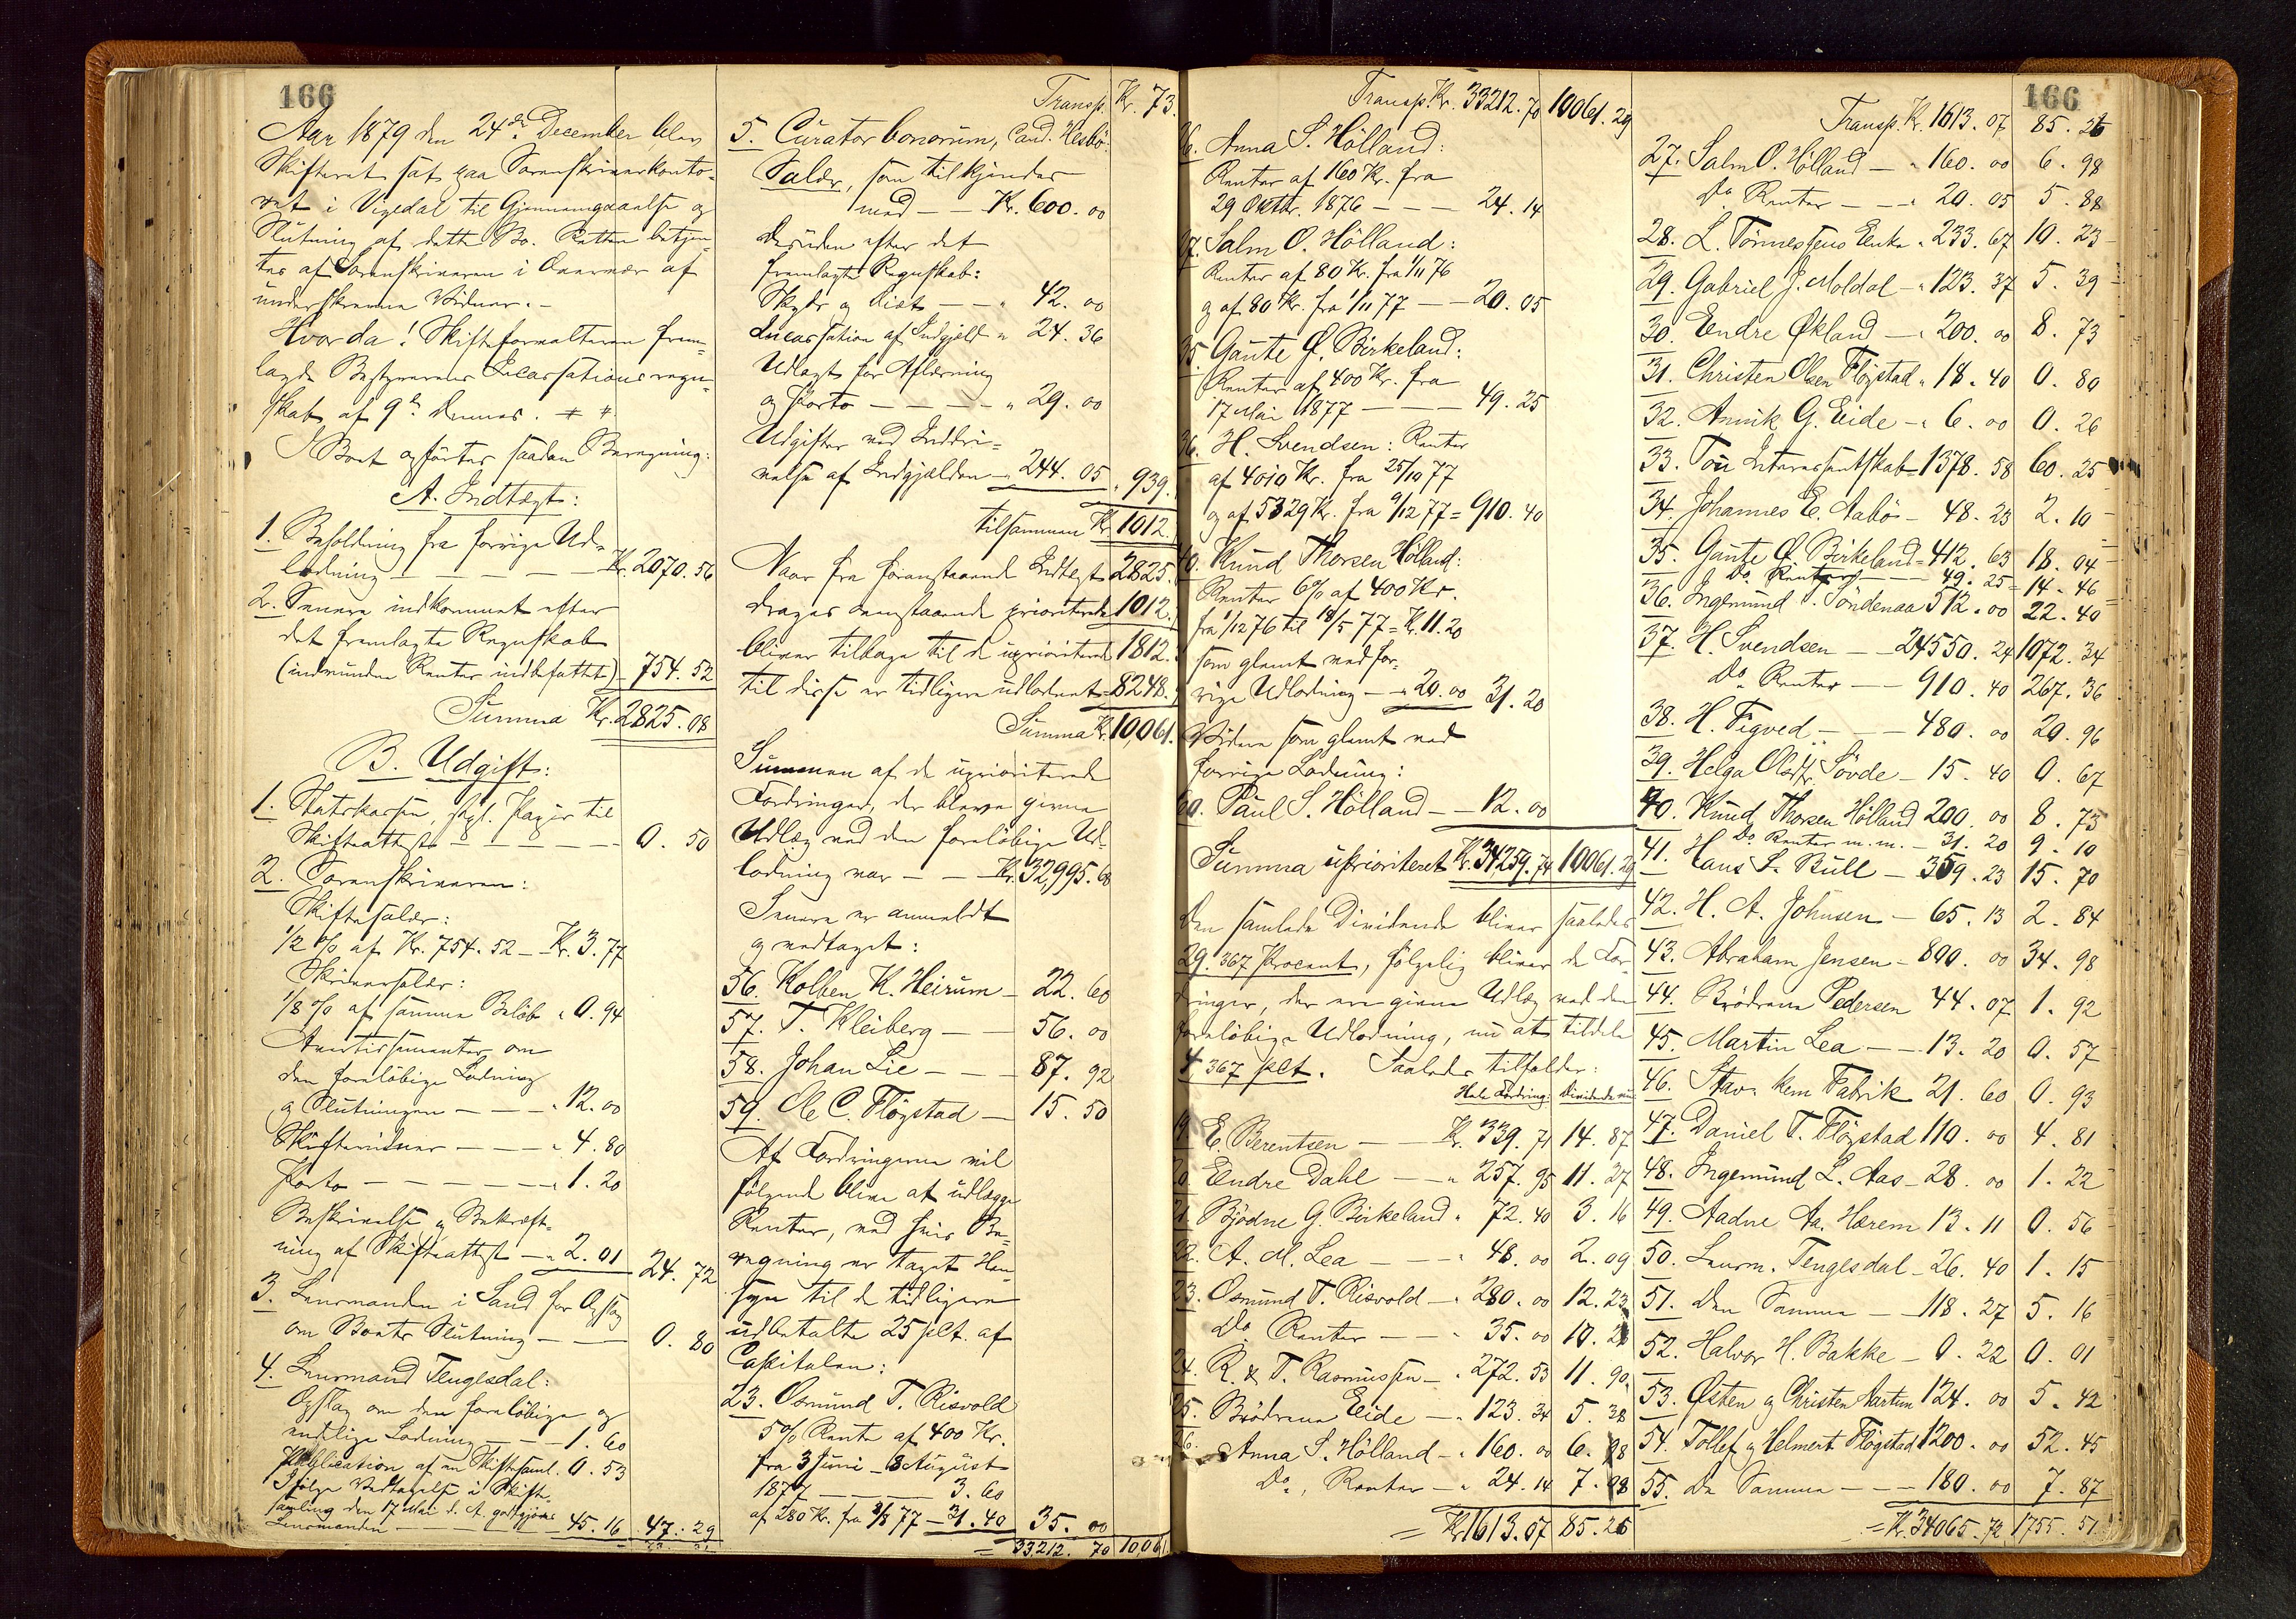 166
Aar 1879 den 24de December blev
Skifteret sat paa Sorenskriverkonto-
ret i Vigedal til Gjennemgaaelse og
Slutning af dette Bo. Retten betjen-
tes af Sorenskriveren i Overvær af
underskrevne Vidner. -
Hvorda! Skifteforvalteren frem-
lagde Bestyrerens Incassationsregn-
skab af 9de Dennes.
I Boet opførtes saadan Beregning:
A. Indtægt:
1. Beholdning fra forrige Ud-
lodning - - - - - Kr. 2070. 56
2. Senere indkommet efter
det fremlagte Regnskab
(indvundne Renter indbefattet) - 754. 52
Summa Kr. 2825. 08
B. Udgift:
1. Statskassen, stpl. Papir til
Skifteattest - - - - - 0. 50
2. Sorenskriveren:
Skiftesalær:
1/2 % af Kr. 754. 52 - Kr. 3. 77
Skriversalær:
1/8 % af samme Beløb " 0. 94
Avertissementer om
den foreløbige Lodning
og Slutningen - - - " 12. 00
Skiftevidner - - - " 4. 80
Porto - - - - - " 1. 20
Beskrivelse og Bekræft-
ning af Skifteattest - " 2. 01 24. 72
3. Lensmanden i Sand for Opslag
om Boets Slutning - - 0. 80
4. Lensmand Tengesdal:
Opslag om den foreløbige og
endelige Lodning - - - 1. 60
Publication af en Skiftesaml. 0. 53
Ifølge Vedtagelse i Skifte-
samling den 17 Mai d. A. godtgjøres
Lensmanden - - - 45. 16 47. 29
Transp. Kr. 73.
5. Curator bonorum, Cand. Hesbø:
Salær, som tilkjendes
med - - Kr. 600. 00
desuden efter det
fremlagte Regnskab:
Skyds og Diæt - - " 42. 00
Incassation af Indgjæld " 24. 36
Udlagt for Afløsning
og Porto - - - - " 29. 00
Udgifter ved Inddri-
velse af Indgjælden - 244. 05 " 939.
tilsammen Kr. 1012.
Naar fra foranstaaende Indtægt 2825.
drages ovenstaaende prioriterede 1012.
bliver tilbage til de uprioriterede 1812.
til disse er tidligere udloddet - 8248.
Summa Kr. 10,061.
Summen af de uprioriterede
Fordringer, der bleve givne
Udlæg ved den foreløbige Ud-
lodning var - - Kr. 32,995. 68
Senere er anmeldt
og vedtaget:
56. Kolben K. Heirum - 22. 60
57. T. Kleiberg - - 56. 00
58. Johan Lie - - - 87. 92
59. Ole C. Fløgstad - 15. 50
Af Fordringerne vil
følgende blive at udlægge
Renter, ved hvis Be-
regning er taget Hen-
syn til de tidligere
udbetalte 25 pCt. af
Capitalen:
23. Osmund T. Risvold
5% Rente af 400 Kr.
fra 3 Juni - 8 August
1877 - - - 3. 60
af 280 Kr. fra 8/8 77 - 31. 40 35. 00
= 33,212. 70 10,061
Transp. Kr. 33212. 70 10061. 29
26. Anna S. Hölland:
Renter af 160 Kr. fra
29 Oktbr. 1876 - - - 24. 14
27. Salm O. Hölland:
Renter af 80 Kr. fra 1/11 76
og af 80 Kr. fra 1/11 77 - - 20. 05
35. Gaute Ø. Birkeland:
Renter af 400 Kr. fra
17 Mai 1877 - - - 49. 25
36. H. Svendsen: Renter
af 4010 Kr. fra 25/10 77
og af 5329 Kr. fra 9/12 77 = 910. 40
40. Knud Thorsen Hölland:
Renter 6% af 400 Kr.
fra 1/12 76 til 18/5 77 = Kr. 11. 20
som glemt ved for-
rige Udlodning - " 20. 00 31. 20
Videre som glemt ved
forrige Lodning:
60. Paul S. Hölland - - 12. 00
Summa uprioriteret Kr. 34259. 74 10061. 29
Den samlede Dividende bliver saaledes
29. 367 Procent, følgelig bliver de For-
dringer, der ere givne Udlæg ved den
foreløbige Udlodning, nu at tildele
4. 367 pCt. Saaledes tilfalder:
Hele Fordring: Dividende nu
19. E. Berentsen - - Kr. 339. 71 14. 87
20. Endre Dahl - - " 257. 95 11. 27
21. Bjodne G. Birkeland " 72. 40 3. 16
22. A. M. Lea - - - " 48. 00 2. 09
23. Osmund T. Risvold - " 280. 00 12. 23
Do Renter - - " 35. 00 10. 28
24. R. & T. Rasmussen - " 272. 53 11. 90
25. Brödrene Eide - " 123. 34 5. 38
26. Anna S. Hölland - " 160. 00 6. 98
Do, Renter - " 24. 14 7. 08
= Kr. 1613. 07 85. 26
166
Transp. Kr. 1613. 07 85. 26
27. Salm O. Hölland - " 160. 00 6. 98
Do Renter - - " 20. 05 5. 88
28. L. Tönnesens Enke " 233. 67 10. 23
29. Gabriel J. Moldal - " 123. 37 5. 39
30. Endre Økland - " 200. 00 8. 73
31. Christen Olsen Fløgstad " 18. 40 0. 80
32. Amrik G. Eide - " 6. 00 0. 26
33. Tou Interessentskab - 1378. 58 60. 25
34. Johannes E. Aabö - 48. 23 2. 10
35. Gaute Ø. Birkeland - 412. 63 18. 04
Do Renter - - - 49. 25 = 14. 46
36. Ingemund T. Söndenaa 512. 00 22. 40
37. H. Svendsen - - 24550. 24 1072. 34
Do Renter - - 910. 40 267. 36
38. H. Figved - - - 480. 00 20. 96
39. Helga Olsdtr Sövde - 15. 40 0. 67
40. Knud Thorsen Hölland 200. 00 8. 73
Do Renter m. m. - 31. 20 9. 10
41. Hans L. Bull - 359. 23 15. 70
42. H. A. Johnsen - 65. 13 2. 84
43. Abraham Jensen - 800. 00 34. 98
44. Brödrene Pedersen 44. 07 1. 92
45. Martin Lea - - 13. 20 0. 57
46. Stav. kem Fabrik 21. 60 0. 93
47. Daniel T. Fløgstad 110. 00 4. 81
48. Ingemund L. Aas - 28. 00 1. 22
49. Aadne Aa. Hærem 13. 11 0. 56
50. Lensm. Tengesdal - 26. 40 1. 15
51. Den Samme - - 118. 27 5. 16
52. Halvor H. Bakke - 0. 22 0. 01
53. Østen og Christen Hartun 124. 00 5. 42
54. Tollef og Helmert Fløgstad 1200. 00 52. 45
55. De Samme - - - 180. 00 7. 87
= Kr. 34065. 72 1755. 51